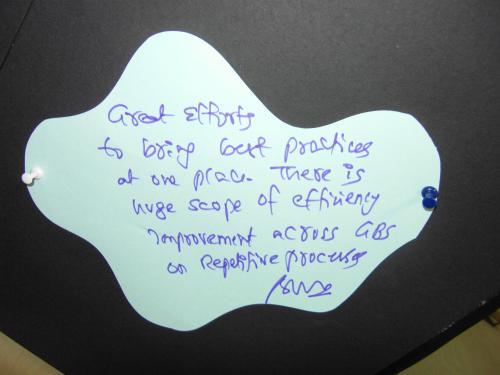 Great Efforts
to bring best practices
at one place. There is
huge scope of efficiency
improvement across GBS
on Repetitive process